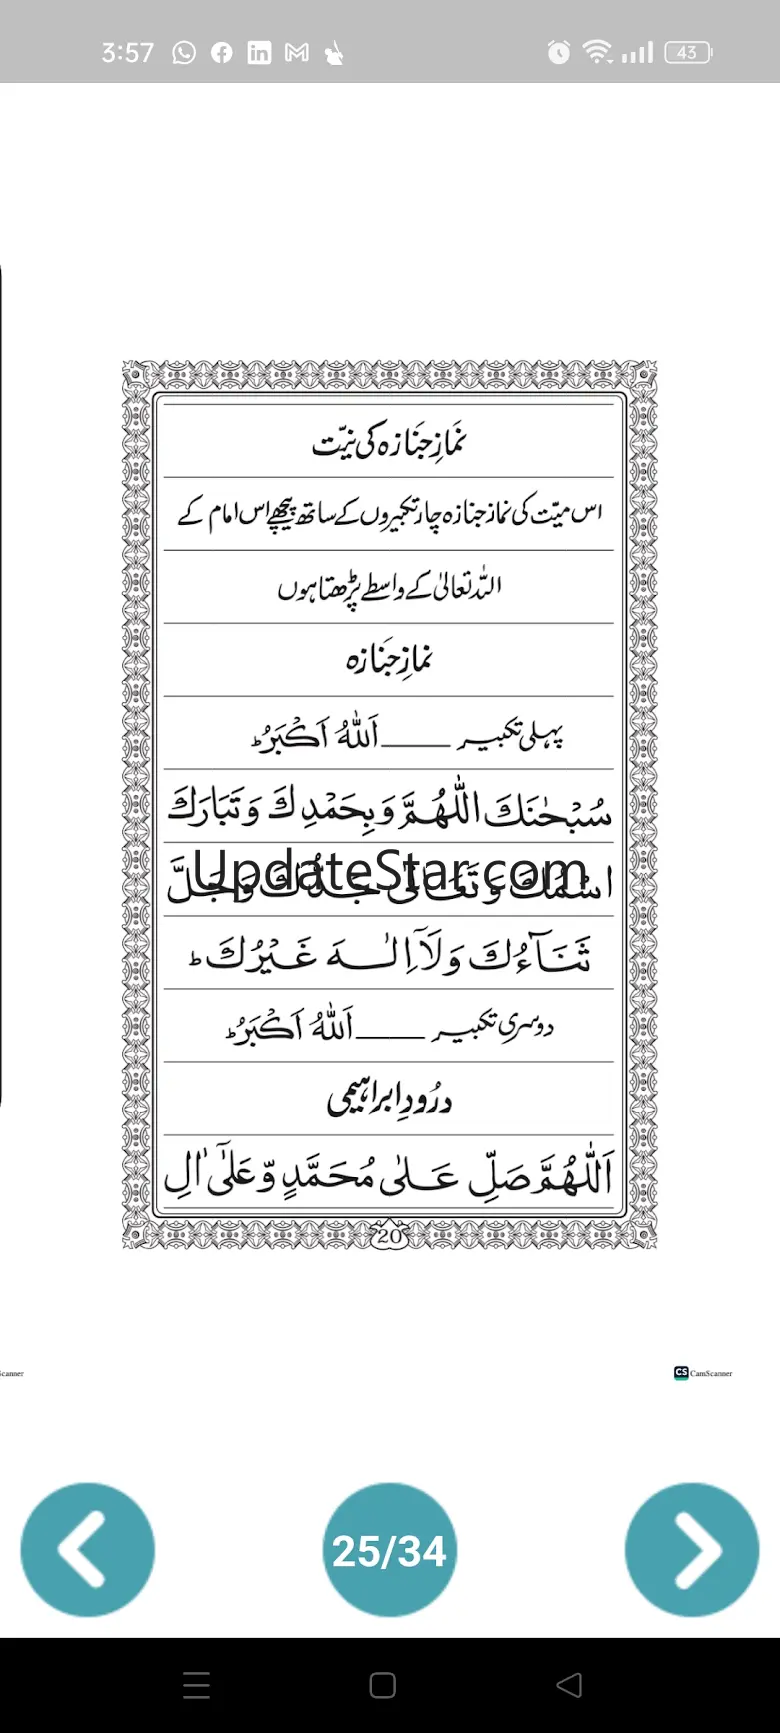 3:57
43
نَمازِ جنَازہ کی نیّت
اس میّت کی نماز جنازہ چار تکبیروں کے ساتھ پیچھے اس امام کے
اللہ تعالیٰ کے واسطے پڑھتا ہوں
نمازِ جنَازہ
پہلی تکبیر ____ اَللّٰهُ اَكْبَرُ ط
سُبْحٰنَكَ اللّٰهُمَّ وَبِحَمْدِكَ وَتَبَارَكَ
اسْمُكَ وَتَعَالٰى جَدُّكَ وَجَلَّ
UpdateStar.com
ثَنَآءُكَ وَلَآ اِلٰهَ غَيْرُكَ ط
دوسری تکبیر ____ اَللّٰهُ اَكْبَرُ ط
درُودِ ابراہیمی
اَللّٰهُمَّ صَلِّ عَلٰى مُحَمَّدٍ وَّعَلٰٓى اٰلِ
20
Scanner
CS CamScanner
25/34